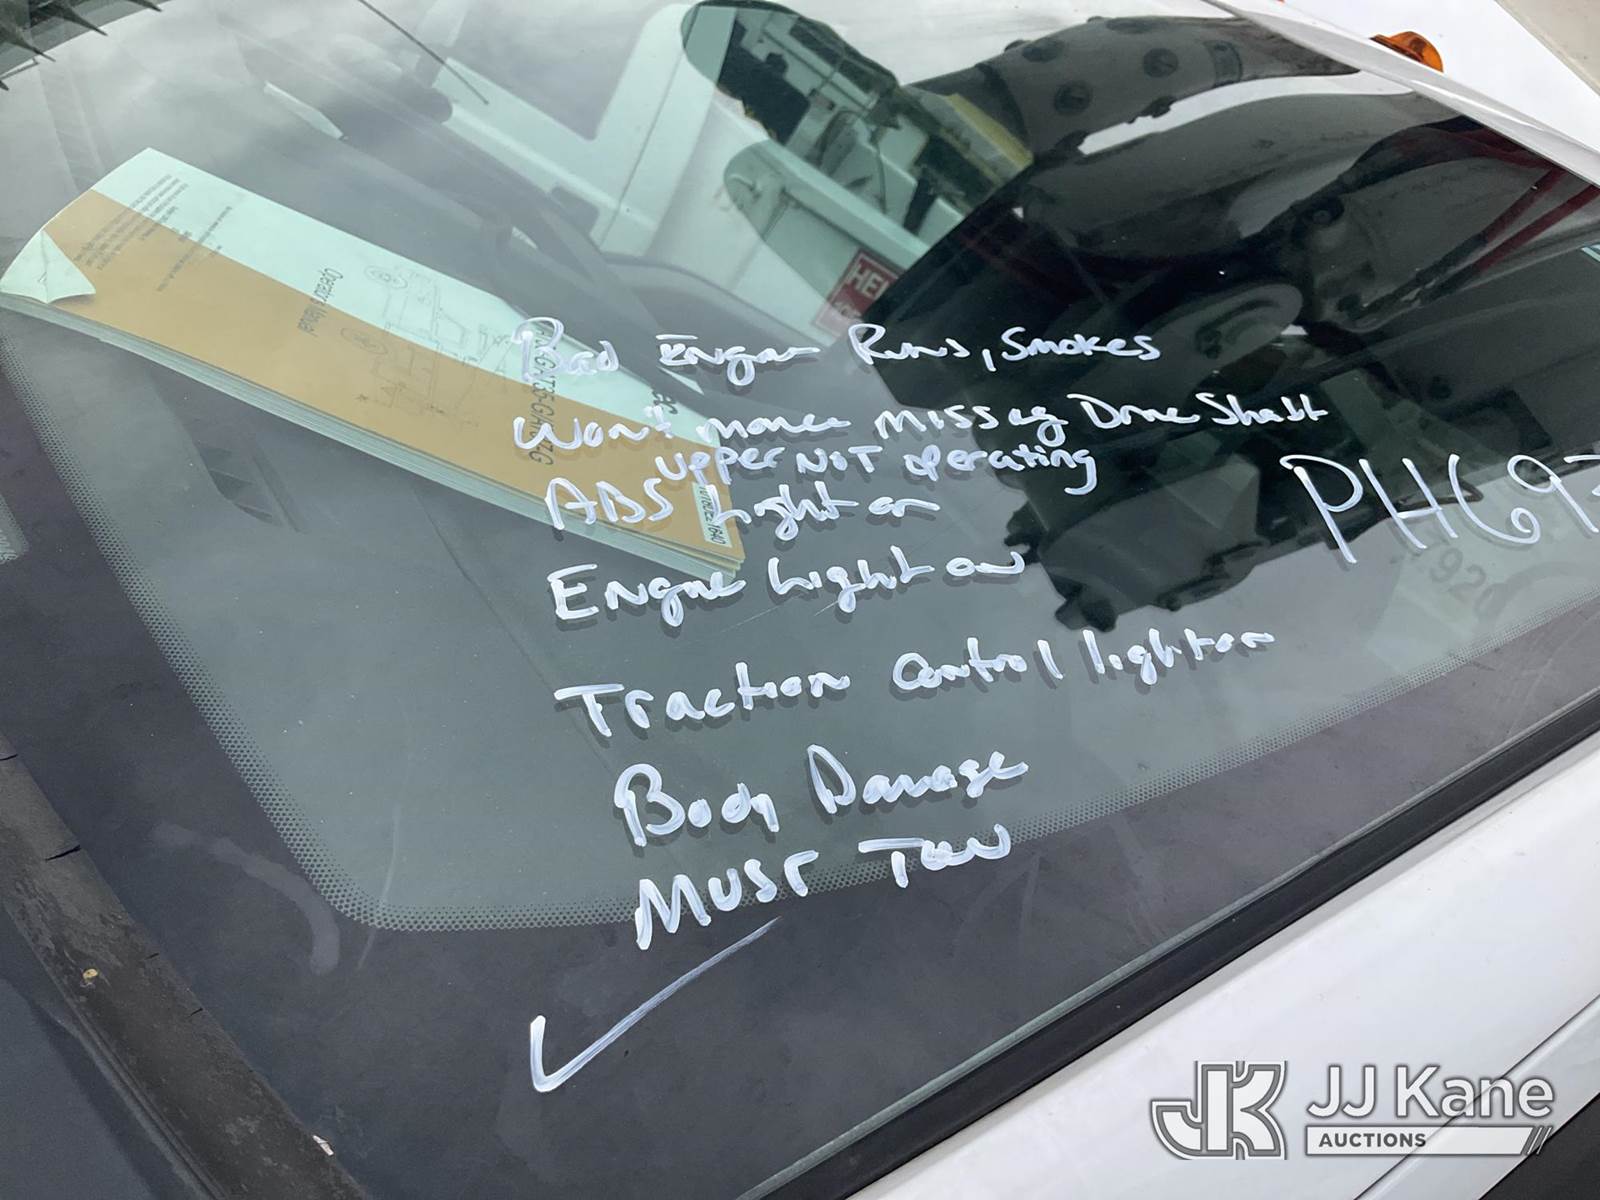 Bad Engine Runs, Smokes
Won't move missing Drive Shaft
upper NOT operating
ABS Light on
Engine Light on
Traction control light on
Body Damage
MUST TOW
PHG97
920
Operator's Manual
HEL
JJ Kane
AUCTIONS